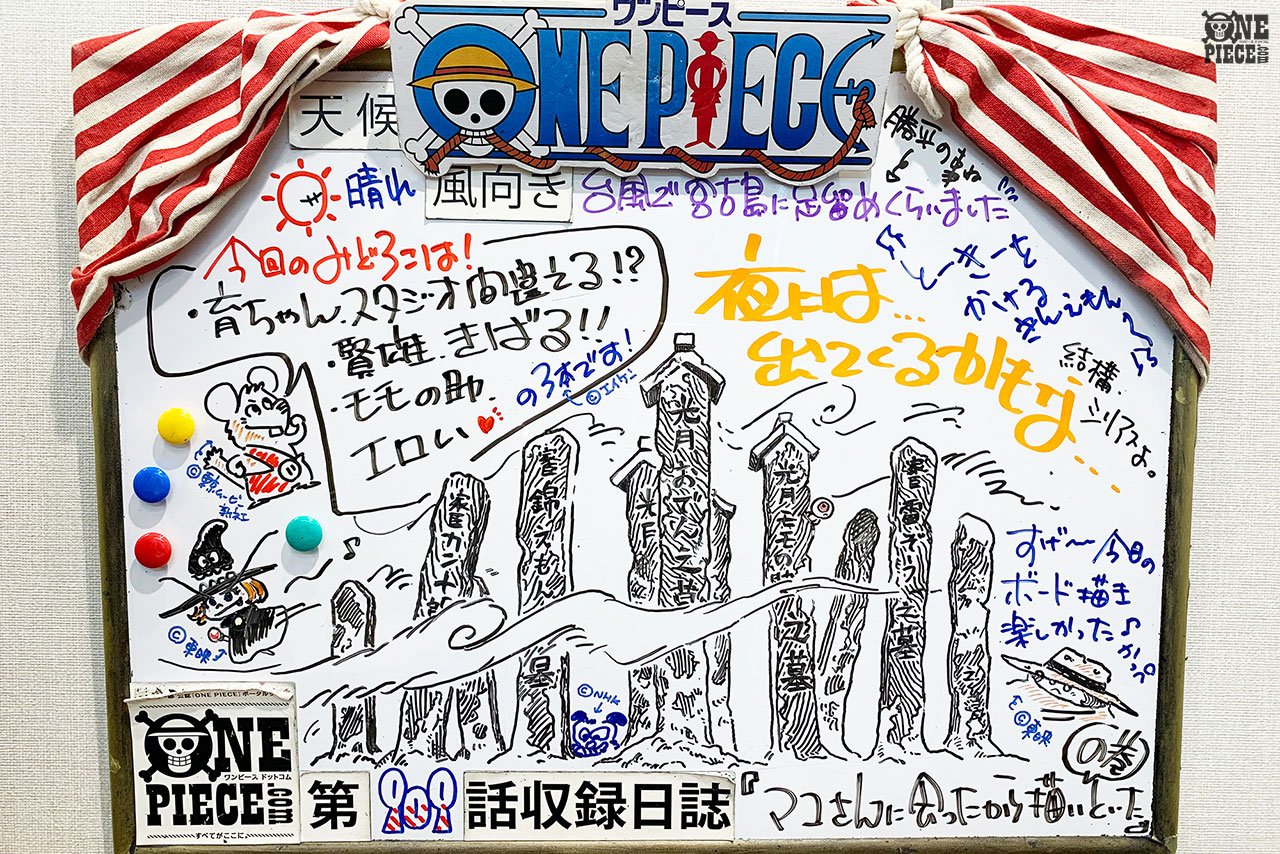 ワンピース
ONE PIECE
ONE PIECE.com
天候
晴れ
風向き
台風で宮古島に足留めくらいました
今回のみどころは!
・育ちゃん、スタジオ間違える!?
・賢雄、きばる!!
・モモの助、エロい
の3本です!
©エイケン
夜には…
出てくるかもな…
とーきーを
かける
きんえもん
結構
シリアスよ。
光月おでん之墓
光月モモの助之墓
光月
錦えもん
カン十郎
雷ぞう之墓
©東映
©NHK
すげ〜今日の
ボード描き
楽しかった♪
©東映
の巻
公認「ONE PIECE」ポータルサイト
ONE PIECE.com
ワンピース ドットコム
すべてがここに。
第
話収録日誌
『マコさんに会ったから描いといた』